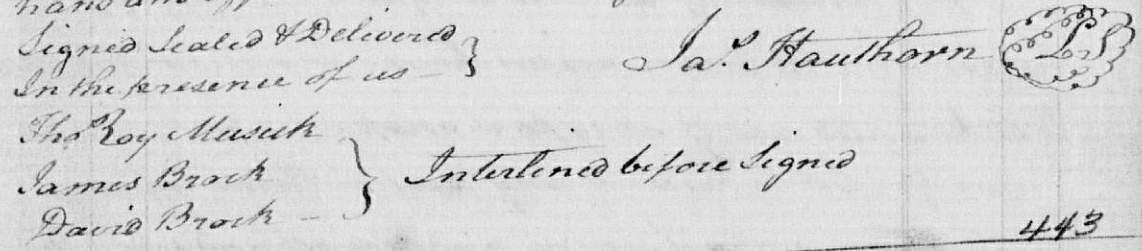 Signed Sealed & Delivered
In the presence of us
Jas. Hawthorn LS
Thos Roy Musick
James Brock
David Brock
Interlined before Signed
443